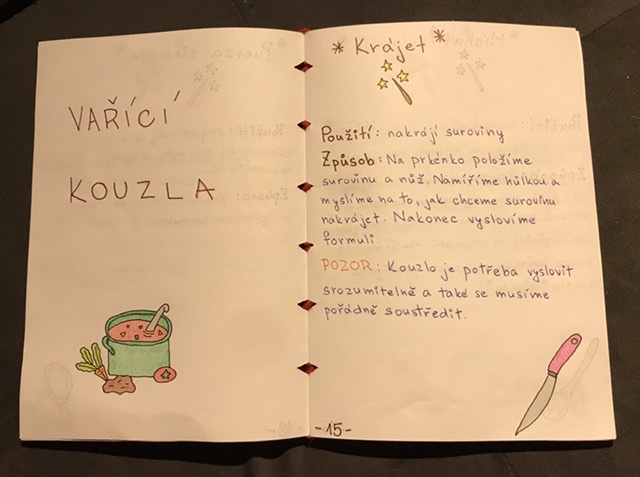 VAŘÍCÍ
KOUZLA
* Krájet *
Použití: nakrájí suroviny
Způsob: Na prkénko položíme
surovinu a nůž. Namíříme hůlkou a
myslíme na to, jak chceme surovinu
nakrájet. Nakonec vyslovíme
formuli.
POZOR: Kouzlo je potřeba vyslovit
srozumitelně a také se musíme
pořádně soustředit.
-15-